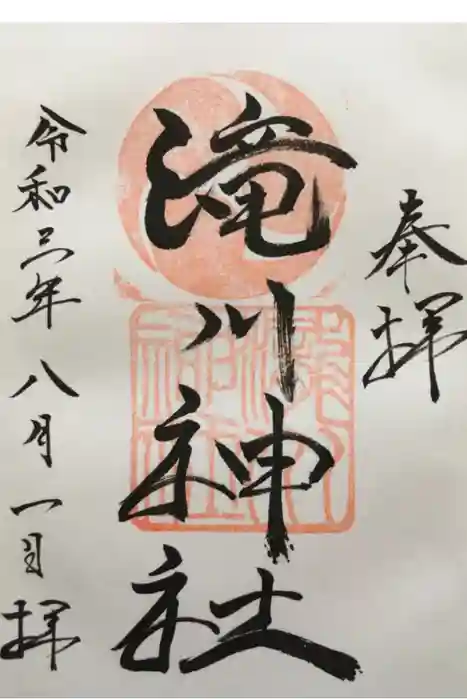 奉拝
滝川神社
令和三年八月一日拝